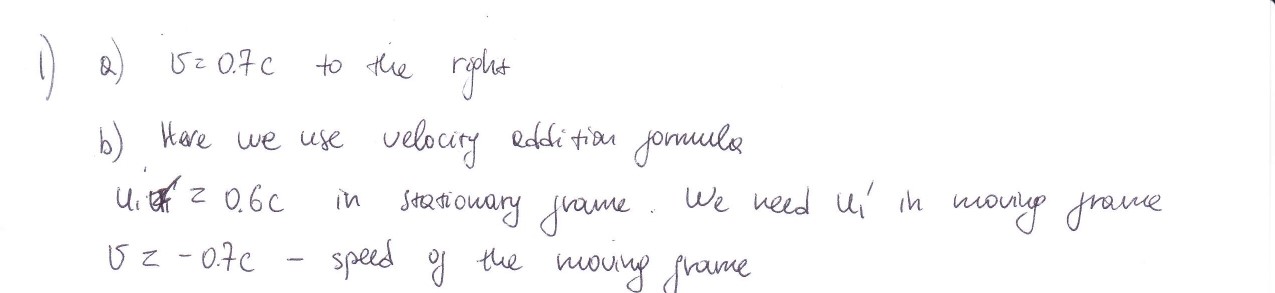 1) a) v = 0.7c to the right
b) Here we use velocity addition formula
u₁ = 0.6c in stationary frame. We need u₁' in moving frame
v = -0.7c - speed of the moving frame